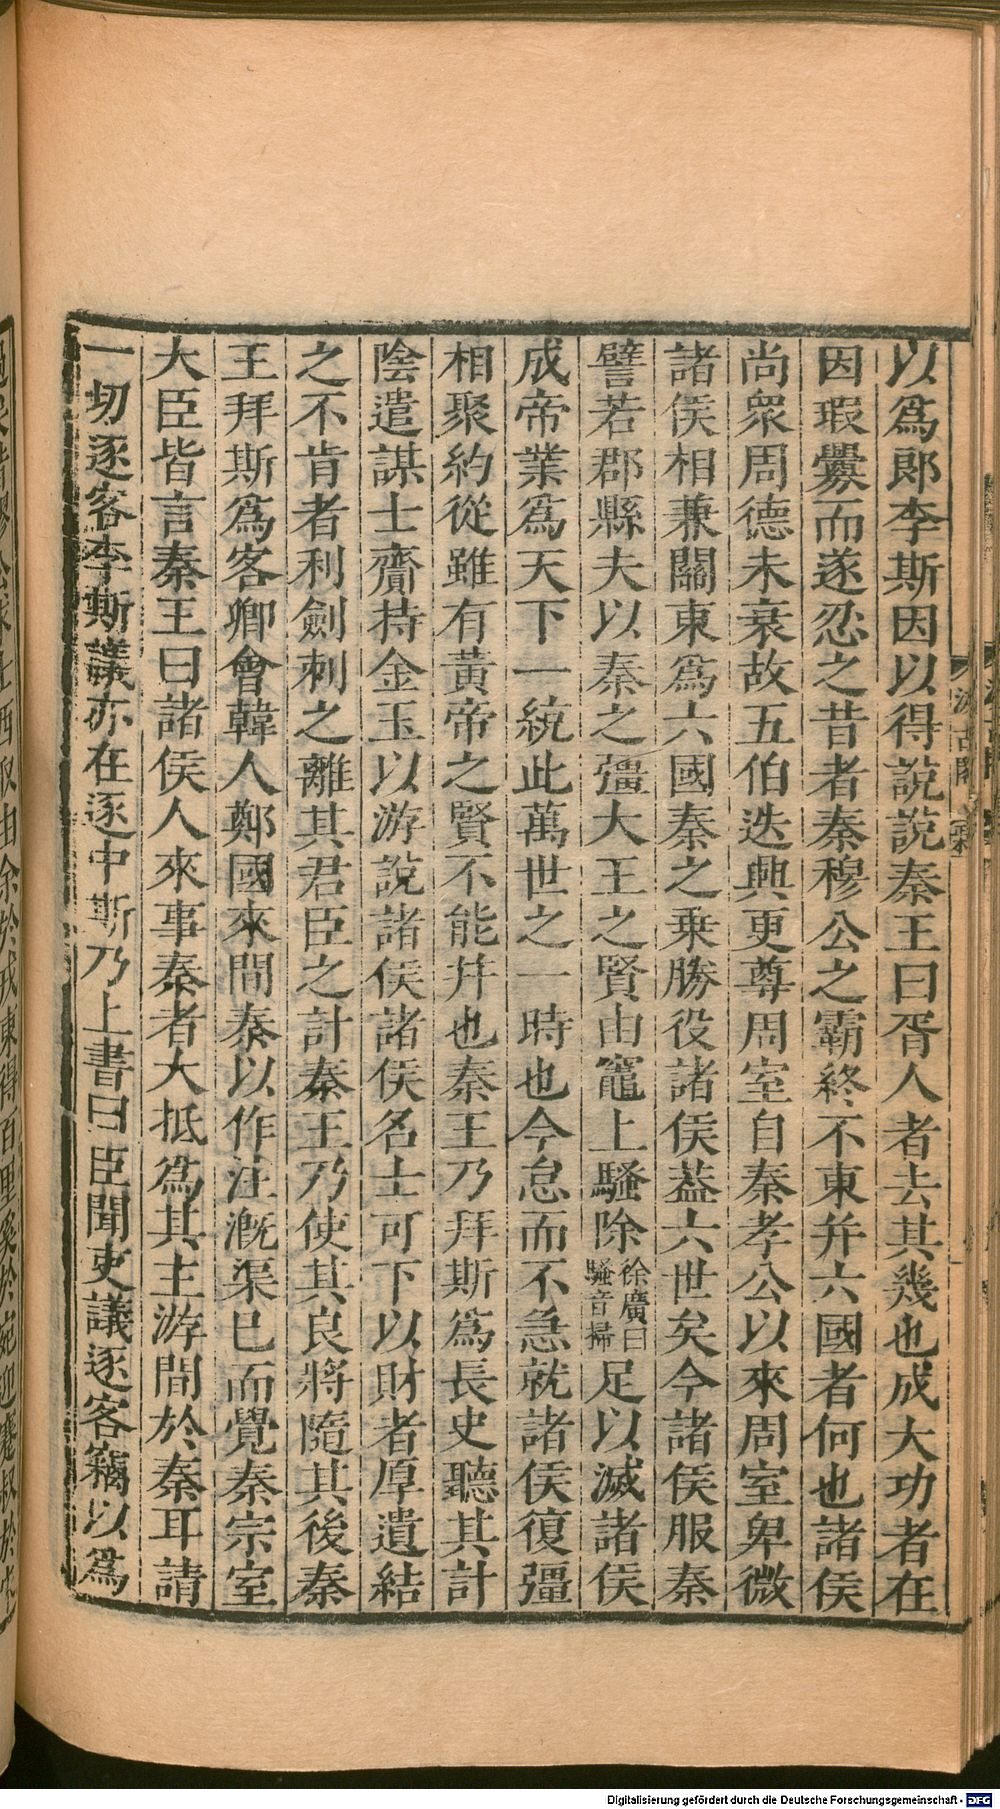 以爲郎李斯因以得說說秦王曰胥人者去其幾也成大功者在
因瑕釁而遂忍之昔者秦穆公之霸終不東并六國者何也諸侯
尚衆周德未衰故五伯迭興更尊周室自秦孝公以來周室卑微
諸侯相兼關東爲六國秦之乗勝役諸侯蓋六世矣今諸侯服秦
譬若郡縣夫以秦之彊大王之賢由竈上騷除徐廣曰騷音掃足以滅諸侯
成帝業爲天下一統此萬世之一時也今怠而不急就諸侯復彊
相聚約從雖有黃帝之賢不能并也秦王乃拜斯爲長史聽其計
陰遣謀士齎持金玉以游說諸侯諸侯名士可下以財者厚遺結
之不肯者利劍刺之離其君臣之計秦王乃使其良將隨其後秦
王拜斯爲客卿會韓人鄭國來間秦以作注漑渠已而覺秦宗室
大臣皆言秦王曰諸侯人來事秦者大抵爲其主游間於秦耳請
一切逐客李斯議亦在逐中斯乃上書曰臣聞吏議逐客竊以爲
汲古閣
西取由余於戎東得百里奚於宛迎蹇叔於
Digitalisierung gefördert durch die Deutsche Forschungsgemeinschaft - DFG